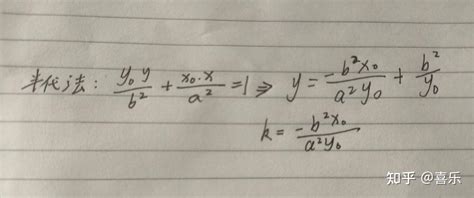 半代法: y₀y/b² + x₀·x/a² = 1 ⇒ y = -b²x₀/a²y₀ + b²/y₀
k = -b²x₀/a²y₀
知乎 @喜乐